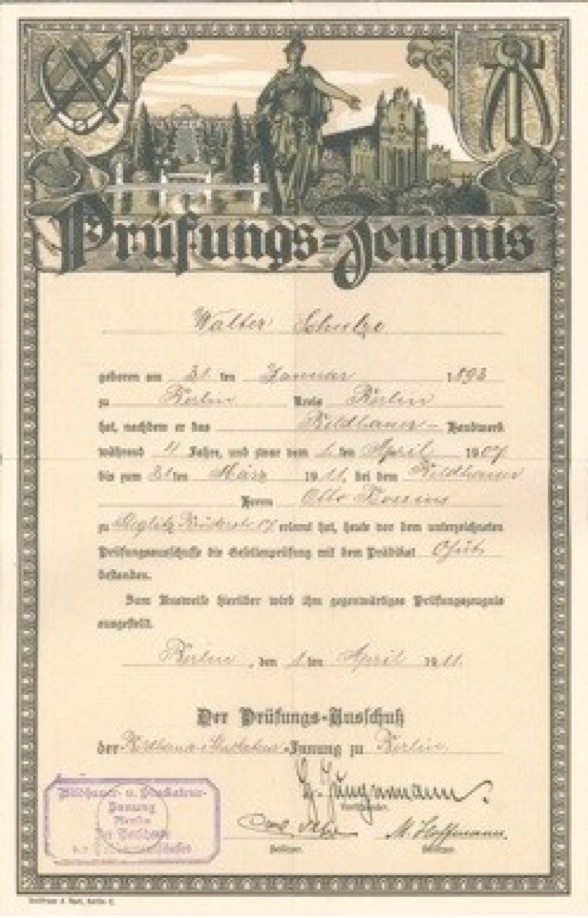 Prüfungs=Zeugnis
Walter Schulze
geboren am 31 ten Januar 1893
zu Berlin Kreis Berlin
hat, nachdem er das Bildhauer- Handwerk
während 4 Jahre, und zwar dem 1. ten April 1907
bis zum 31 ten März 1911. bei dem Bildhauer
Herrn Otto
zu erlernt hat, heute vor dem unterzeichneten
Prüfungsausschusse die Gesellenprüfung mit dem Prädikat Gut
bestanden.
Zum Ausweise hierüber wird ihm gegenwärtiges Prüfungszeugnis
ausgestellt.
Berlin, den 1 ten April 1911.
Der Prüfungs-Ausschuß
der Bildhauer u Stuckateur-Innung zu Berlin
Jungermann.
Vorsitzender.
M. Hoffmann.
Beisitzer. Beisitzer.
Bildhauer- u. Stuckateur-
Innung
Berlin
Der Vorsitzende